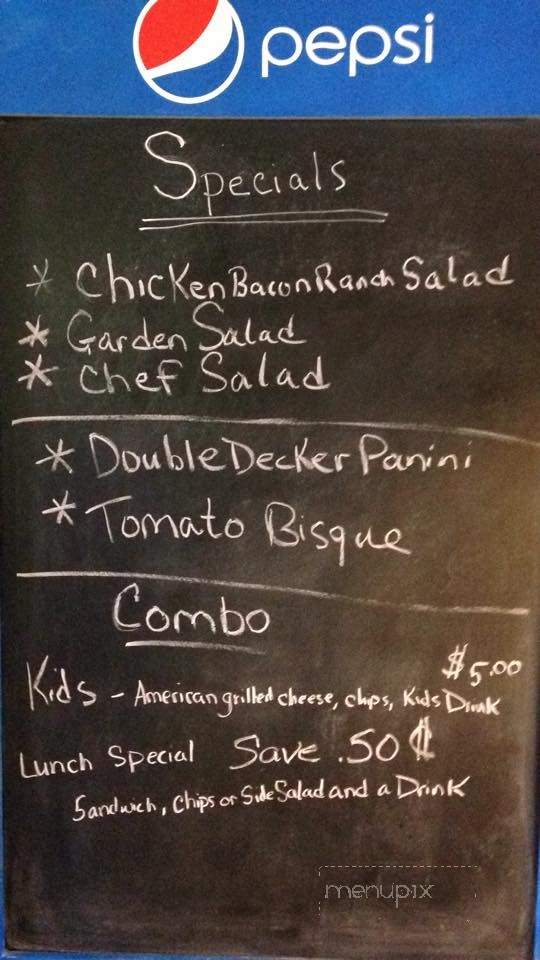 pepsi
Specials
* Chicken Bacon Ranch Salad
* Garden Salad
* Chef Salad
* Double Decker Panini
* Tomato Bisque
Combo
$5.00
Kids - American grilled cheese, chips, Kids Drink
Lunch Special Save .50¢
Sandwich, Chips or Side Salad and a Drink
menupix